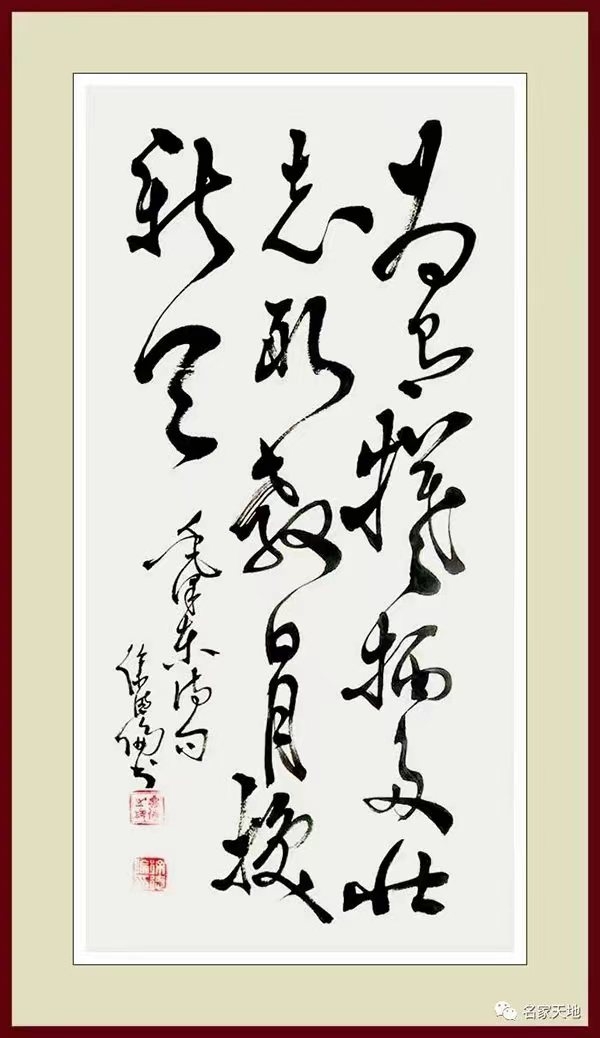 为有犧牲多壮
志敢教日月换
新天
毛泽东诗句
徐
书
名家天地